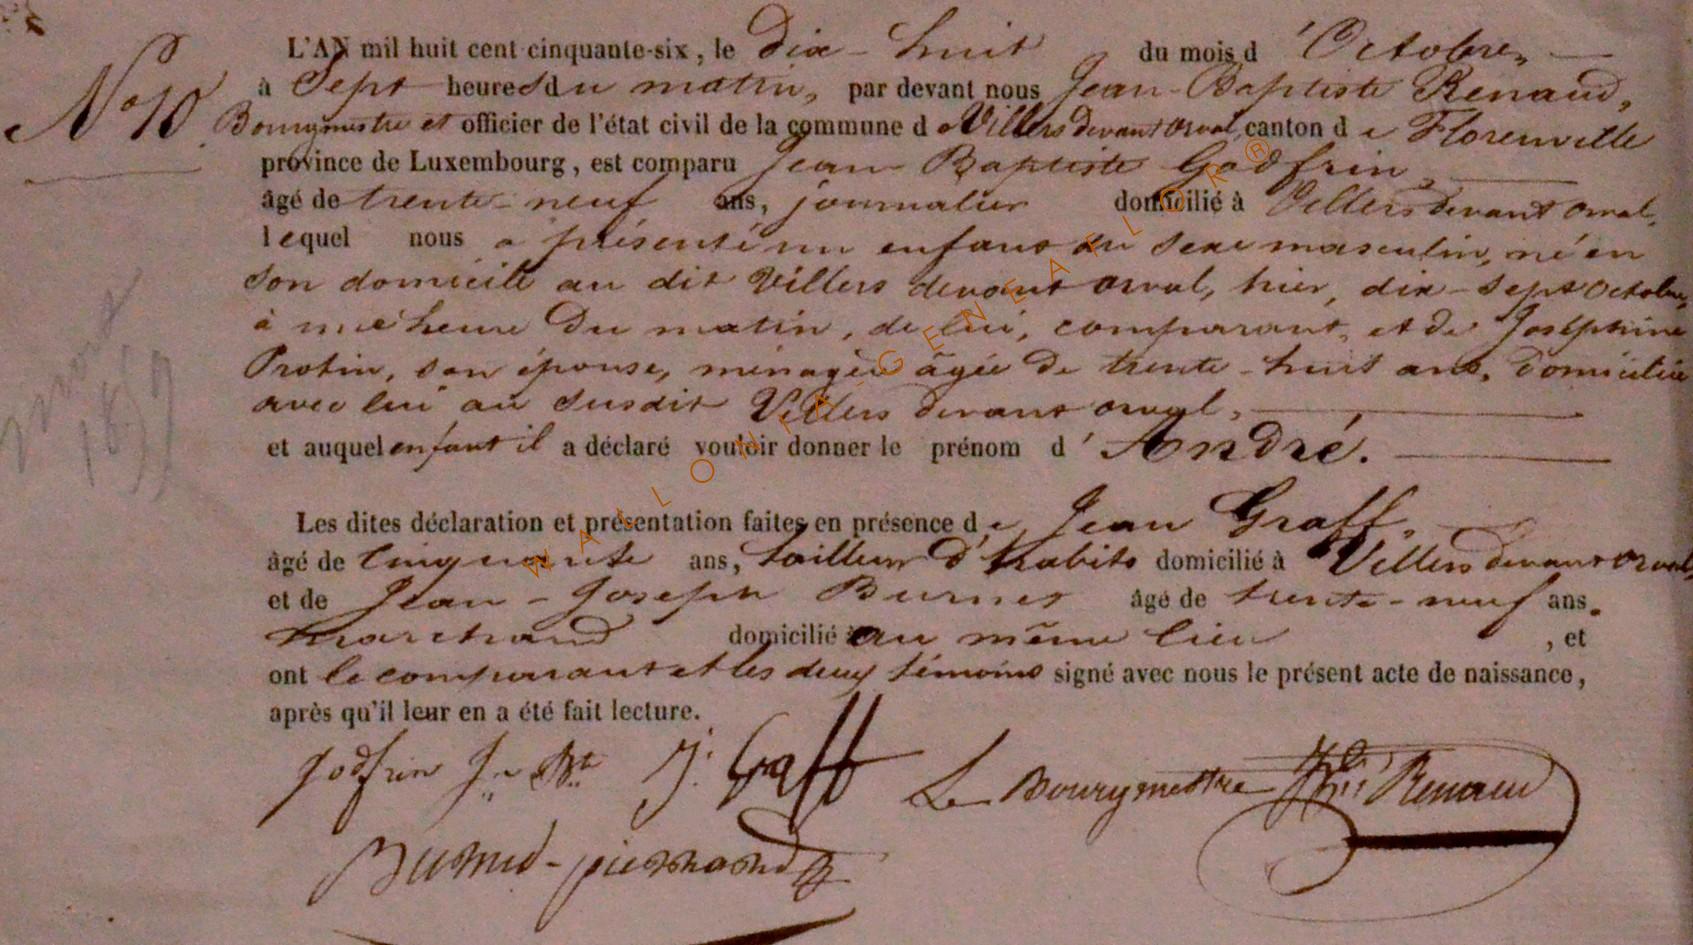 L'AN mil huit cent cinquante-six, le dix-huit du mois d'Octobre,
N° 10
à Sept heures du matin, par devant nous Jean-Baptiste Renaud,
Bourgmestre et officier de l'état civil de la commune de Villers devant orval, canton de Florenville
province de Luxembourg, est comparu Jean Baptiste Godfrin,
âgé de trente-neuf ans, journalier domicilié à Villers devant orval,
lequel nous a présenté un enfant du sexe masculin, né en
son domicile au dit Villers devant orval, hier, dix-sept Octobre,
à une heure du matin, de lui, comparant, et de Joséphine
Protin, son épouse, ménagère âgée de trente-huit ans, domiciliée
avec lui au susdit Villers devant orval,
et auquel enfant il a déclaré vouloir donner le prénom d'André.
Les dites déclaration et présentation faites en présence de Jean Graff,
âgé de cinquante ans, tailleur d'habits domicilié à Villers devant orval,
et de Jean-Joseph Burnet âgé de trente-neuf ans.
marchand domicilié au même lieu, et
ont le comparant et les deux témoins signé avec nous le présent acte de naissance,
après qu'il leur en a été fait lecture.
Godfrin Jn Bte J. Graff Le Bourgmestre Renaud
WALLONIA-GENEAFLOR®